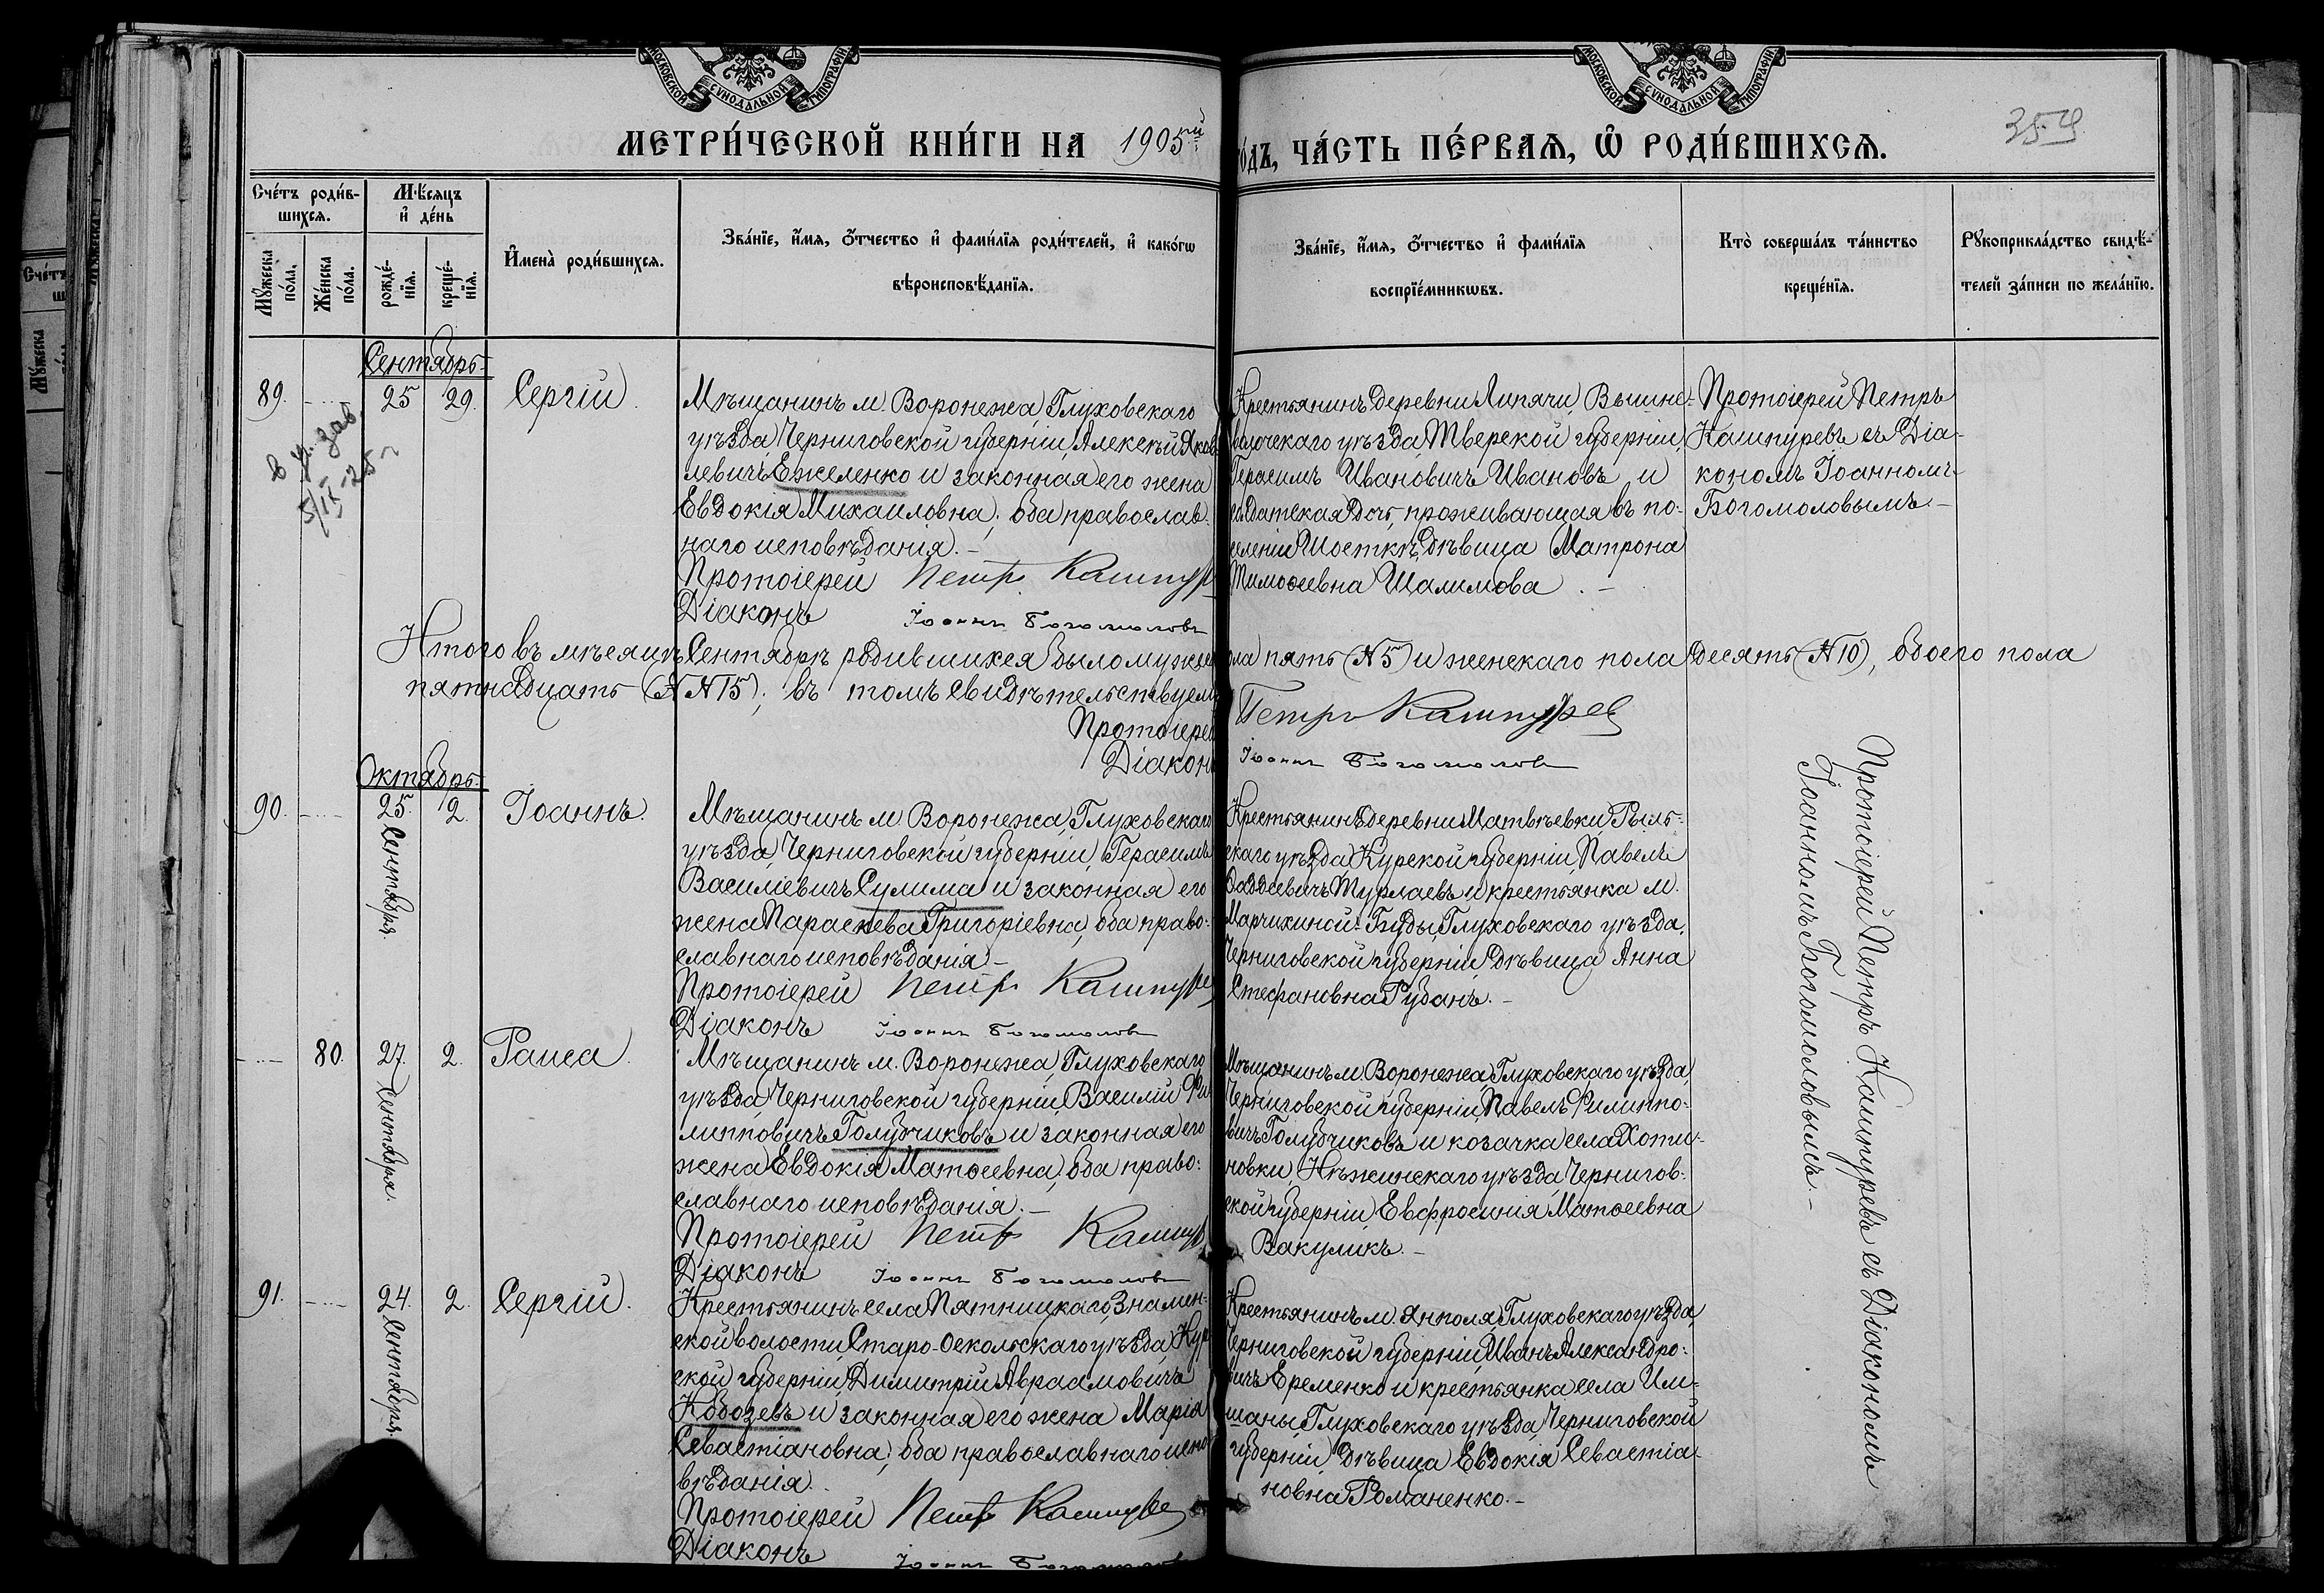 МОСКОВСКОЙ СѴНОДАЛЬНОЙ ТИПОГРАФІИ
МОСКОВСКОЙ СѴНОДАЛЬНОЙ ТИПОГРАФІИ
МЕТРИ́ЧЕСКОЙ КНИ́ГИ НА 1905й
го́дъ, ЧА́СТЬ ПЕ́РВАЯ, Ѽ РОДИ́ВШИХСЯ.
354
Сче́тъ роди́в-
шихся.
Мѣ́сяцъ
и де́нь
Му́жеска по́ла.
Же́нска по́ла.
рожде́-
нїя.
креще́-
нїя.
Имена̀ роди́вшихся.
Зва́нїе, и́мя, о́тчество и фами́лїя роди́телей, и како́гѡ
вѣроисповѣ́данїя.
Зва́нїе, и́мя, о́тчество и фами́лїя
воспрїе́мникѡвъ.
Кто̀ соверша́лъ та́инство
креще́нїя.
Рꙋкоприкла́дство свидѣ́-
телей за́писи по жела́нїю.
Сентябрь
89.
25
29.
Сергій.
5/IX-25 г
Мѣщанинъ м. Воронежа, Глуховскаго
уѣзда, Черниговской губерніи, Алексѣй Яков
левичъ Ежеленко и законная его жена
Евдокія Михаиловна, оба православ-
наго исповѣданія.–
Протоіерей Петръ Кашпур
Діаконъ Іоаннъ Богомоловъ
Крестьянинъ деревни Липячи, Вышне-
волоцкаго уѣзда, Тверской губерніи,
Герасимъ Ивановичъ Ивановъ и
солдатская дочь, проживающая въ по-
селеніи Шосткѣ, дѣвица Матрона
Тимоѳеевна Шалимова.–
Протоіерей Петръ
Кашпуревъ съ Діа-
кономъ Іоанномъ
Богомоловымъ.–
Итого въ мѣсяцѣ Сентябрѣ родившихся было мужес
ола пять (№5) и женскаго пола десять (№10), обоего пола
пятнадцать (№№15); въ томъ свидѣтельствуемъ
Протоіерей Петръ Кашпурев
Діаконъ Іоаннъ Богомолов
Октябрь.
90.
25. Сентября.
2.
Іоаннъ.
Мѣщанинъ м. Воронежа, Глуховскаго
уѣзда, Черниговской губерніи, Герасимъ
Василіевичъ Сулима и законная его
жена Параскева Григоріевна, оба право-
славнаго исповѣданія.–
Протоіерей Петръ Кашпуре
Діаконъ Іоаннъ Богомолов
Крестьянинъ деревни Матвѣевки, Рыль-
скаго уѣзда, Курской губерніи, Павелъ
Ѳаддеевичъ Турлаевъ и крестьянка м.
Марчихиной-Буды, Глуховскаго уѣзда,
Черниговской губерніи, дѣвица Анна
Стефановна Рубанъ.–
Протоіерей Петръ Кашпуревъ съ Діакономъ
Іоанномъ Богомоловымъ.–
80.
27. Сентября.
2.
Раиса.
Мѣщанинъ м. Воронежа, Глуховскаго
уѣзда, Черниговской губерніи, Василій Фи
липповичъ Голубчиковъ и законная его
жена Евдокія Матѳеевна, оба право-
славнаго исповѣданія.–
Протоіерей Петръ Кашпур
Діаконъ Іоаннъ Богомолов
Мѣщанинъ м. Воронежа, Глуховскаго уѣзда,
Черниговской губерніи, Павелъ Филиппо-
вичъ Голубчиковъ и козачка села Хоти-
новки, Нѣжинскаго уѣзда, Чернигов-
ской губерніи, Евфросинія Матѳеевна
Вакуликъ.–
91.
24. Сентября.
2.
Сергій.
Крестьянинъ села Пятницкаго, Знамен-
ской волости, Старо-Оскольскаго уѣзда, Кур
ской губерніи, Димитрій Авраамовичъ
Кобозевъ и законная его жена Марія
Севастіановна, оба православнаго испо
вѣданія.–
Протоіерей Петръ Кашпуре
Діаконъ Іоаннъ Богомолов
Крестьянинъ м. Янполя, Глуховскаго уѣзда,
Черниговской губерніи, Иванъ Александро-
вичъ Еременко и крестьянка села Им-
шаны, Глуховскаго уѣзда, Черниговской
губерніи, дѣвица Евдокія Севастіа-
новна Романенко.–